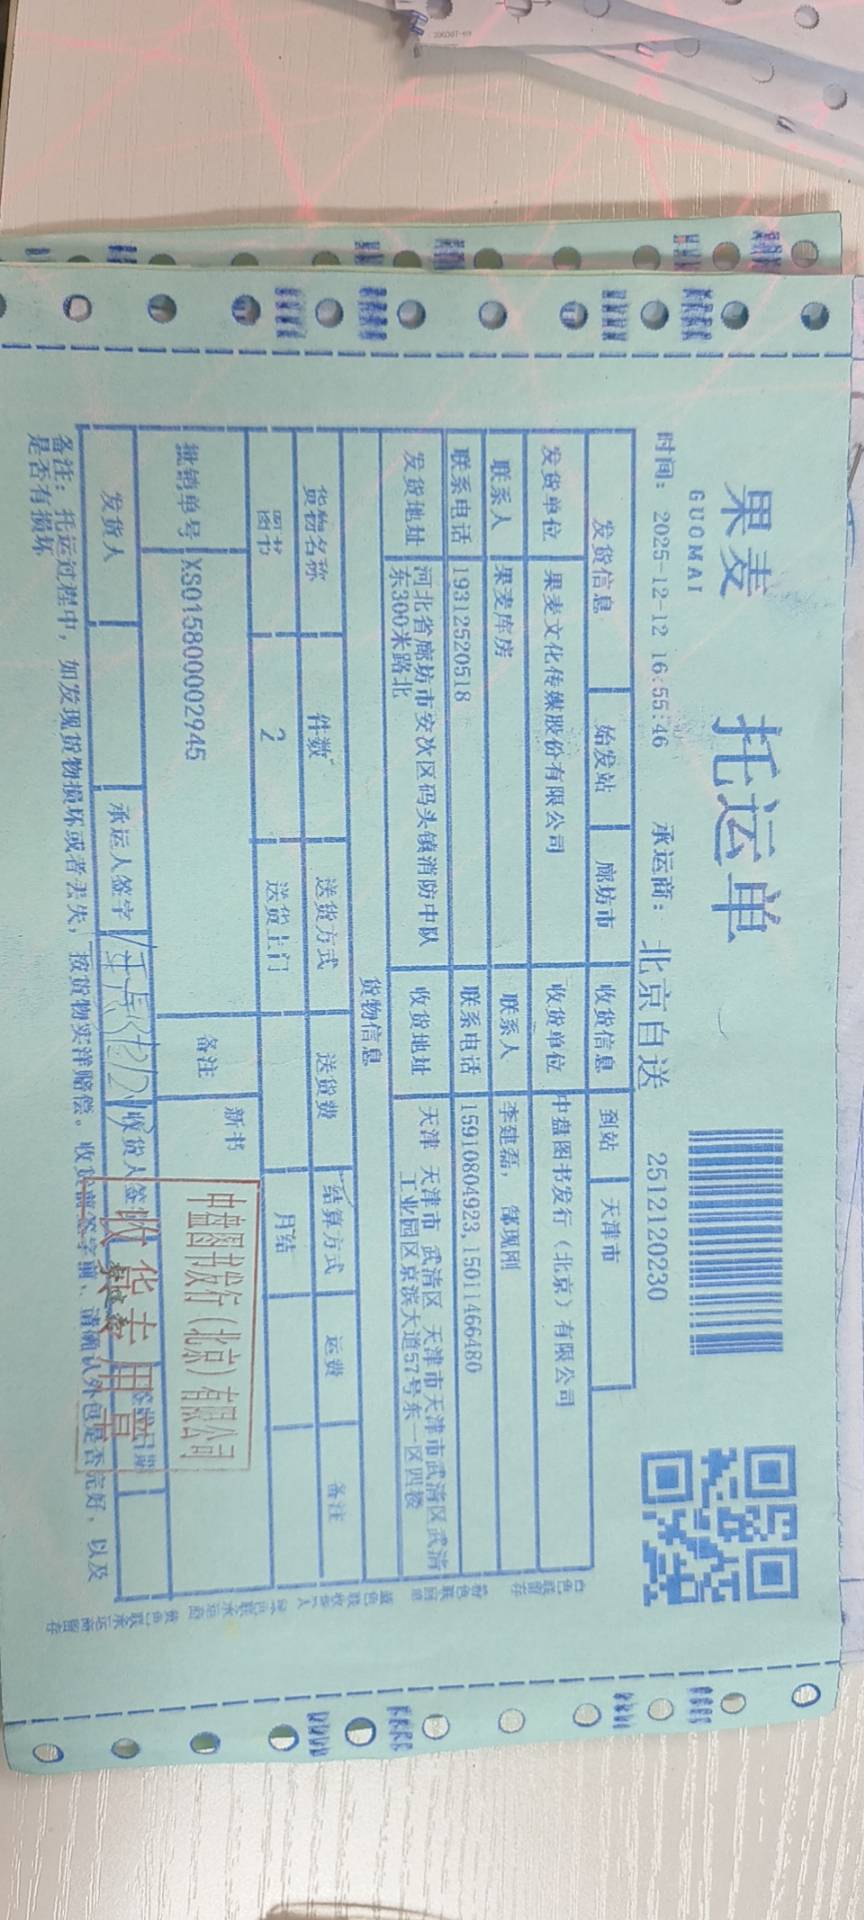 果麦
GUOMAI
托运单
时间: 2025-12-12 16:55:46 承运商: 北京自送 2512120230
发货信息 始发站 廊坊市 收货信息 到站 天津市
发货单位 果麦文化传媒股份有限公司 收货单位 中盘图书发行（北京）有限公司
联系人 果麦库房 联系人 李建磊, 郜现刚
联系电话 19312520518 联系电话 15910804923,15011466480
发货地址 河北省廊坊市安次区码头镇消防中队
东300米路北 收货地址 天津 天津市 武清区 天津市天津市武清区武清
工业园区京滨大道57号东一区四楼
货物信息
货物名称 件数 送货方式 送货费 结算方式 运费 备注
图书 2 送货上门 月结
批销单号 XS015800002945 备注 新书
发货人 承运人签字 收货人签
中盘图书发行（北京）有限公司
收货专用章
备注: 托运过程中, 如发现货物损坏或者丢失, 按货物实洋赔偿。收货前签字前, 请确认外包是否完好, 以及
是否有损坏